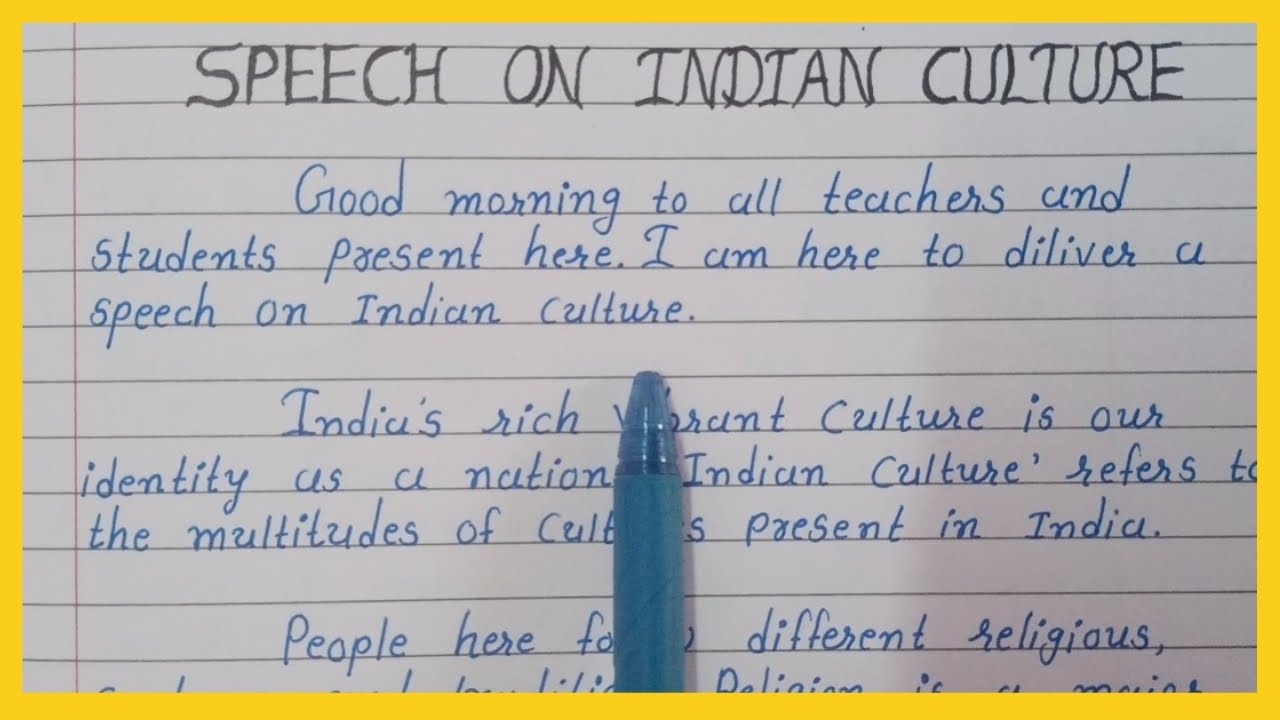 SPEECH ON INDIAN CULTURE
Good morning to all teachers and
students present here. I am here to diliver a
speech on Indian Culture.
India's rich Culture is our
identity as a nation Indian Culture' refers to
the multitudes of present in India.
People here different religious,
Religion is a major